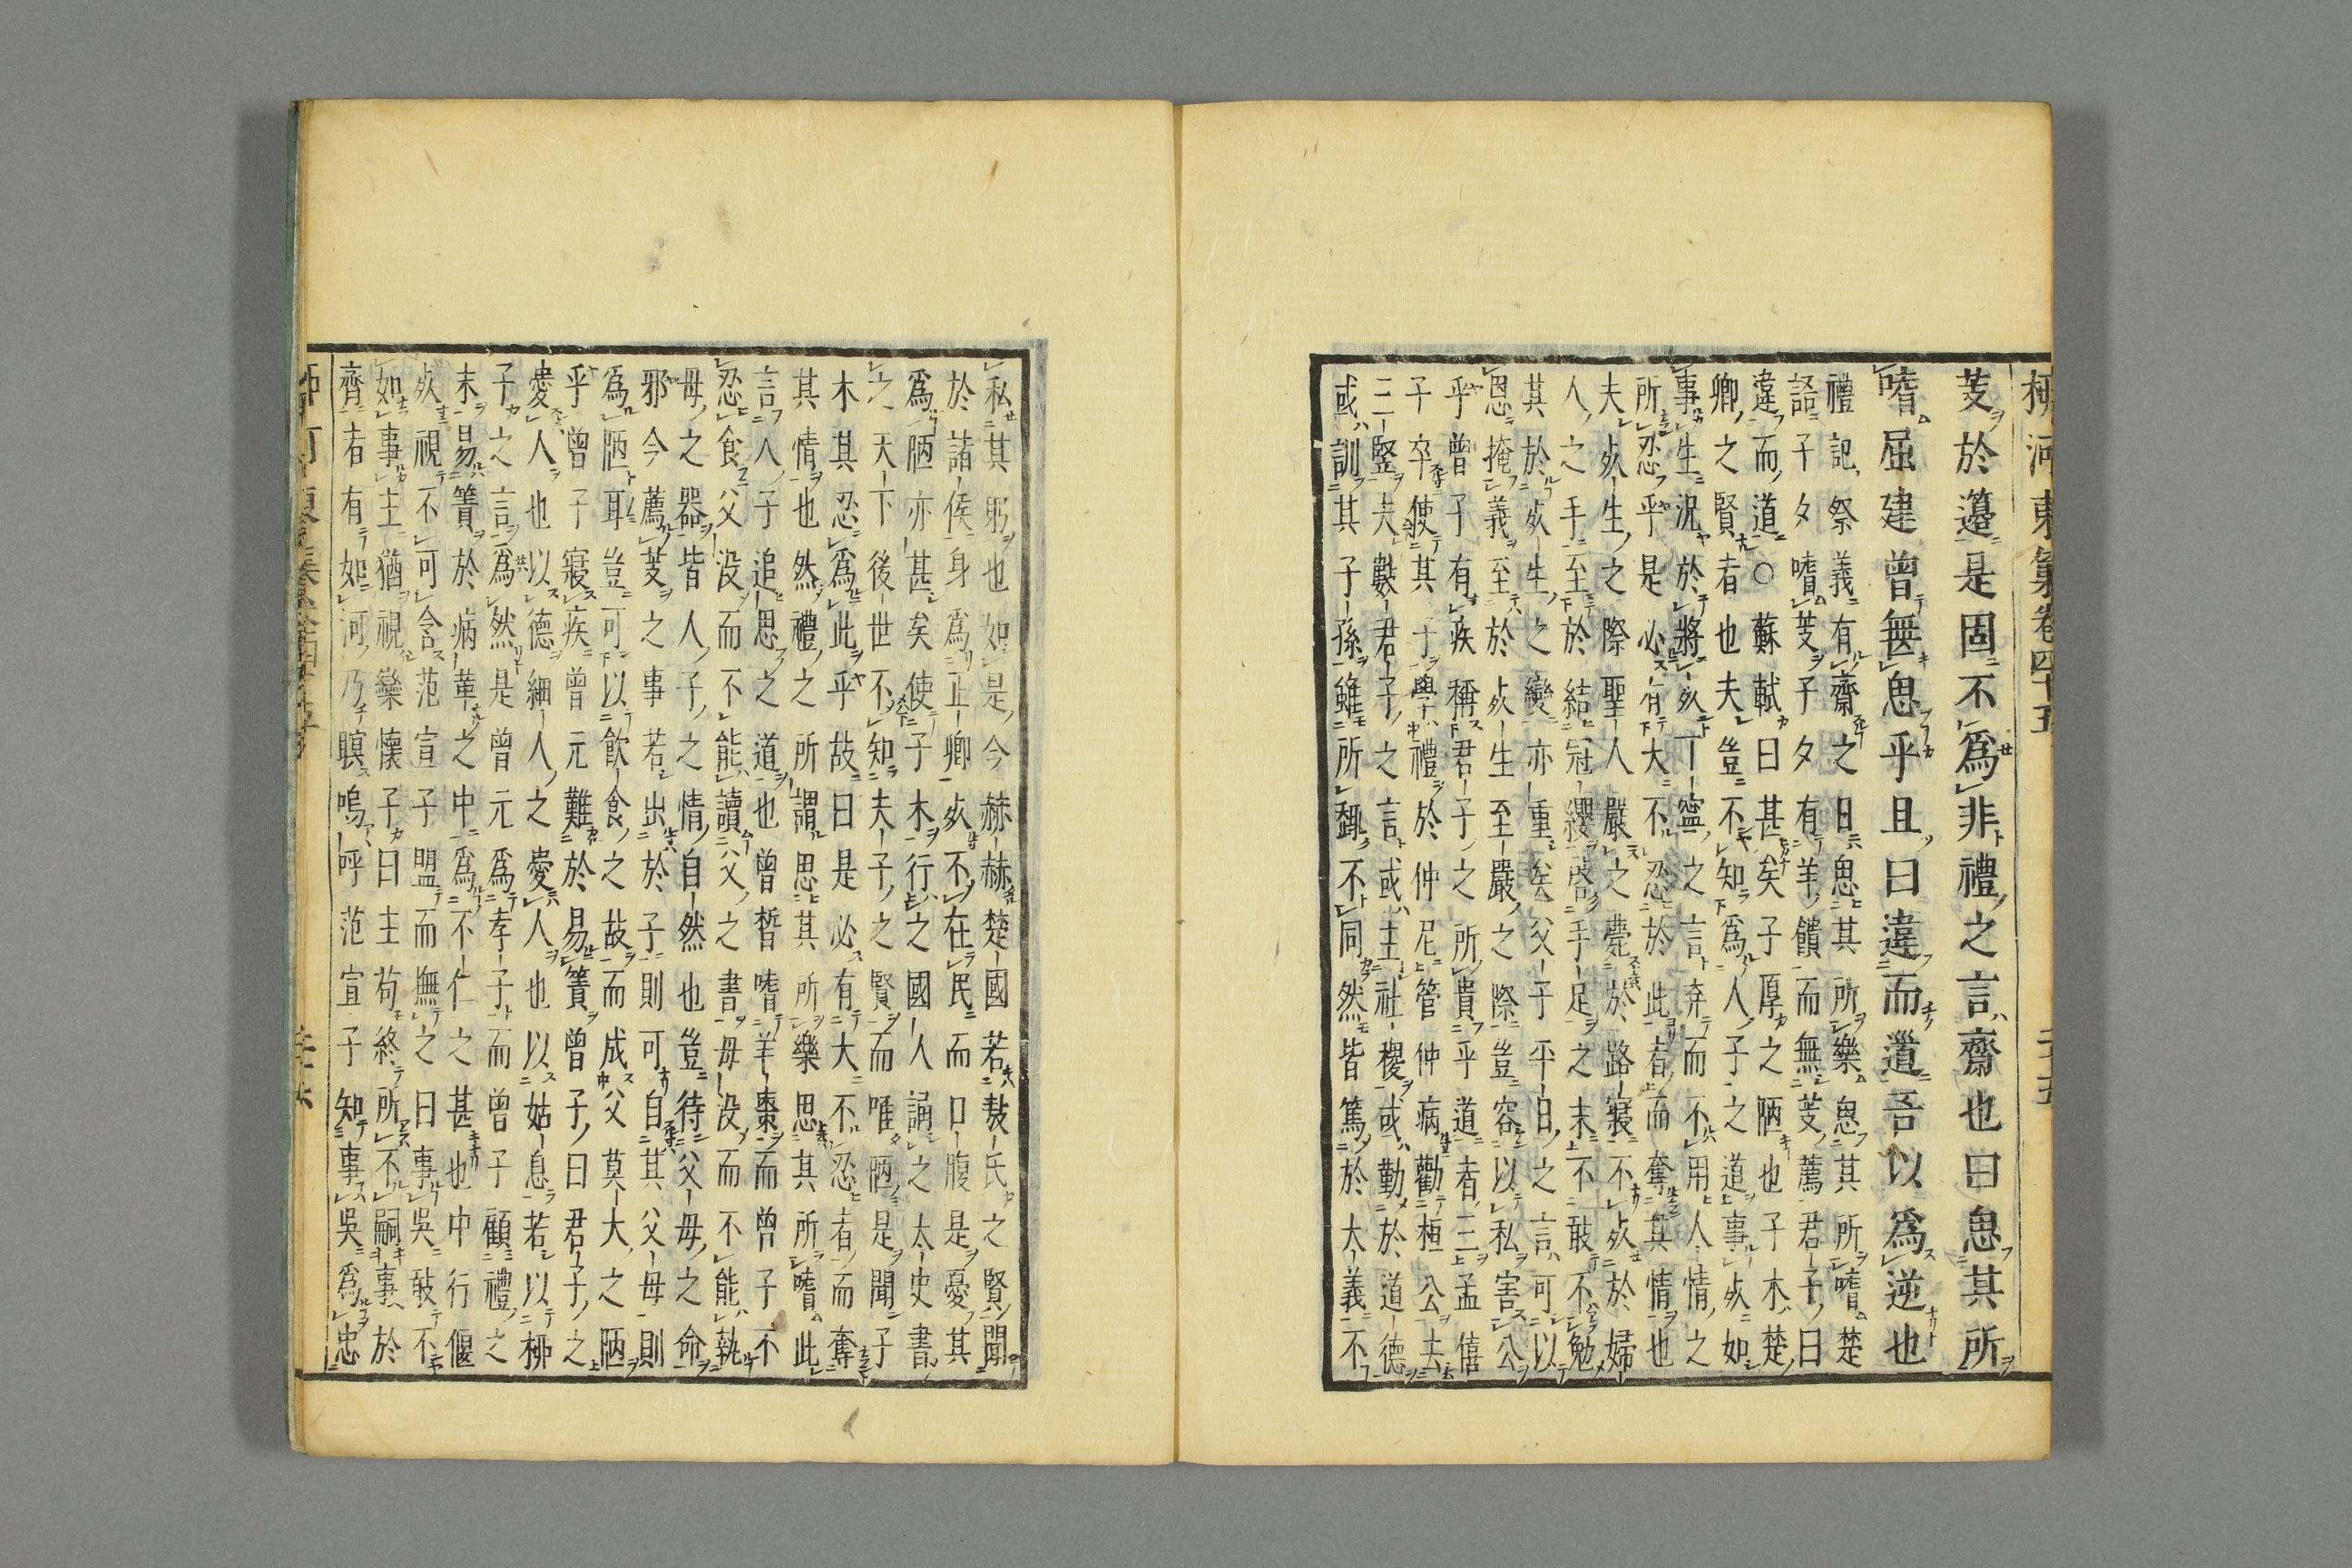 柳河東集卷四十五
芰於籩是固不爲非禮之言齋也曰思其所
嗜屈建曾無思乎且曰違而道吾以爲逆也
禮記祭義有齋之日思其所樂思其所嗜楚
語子夕嗜芰子夕有羊饋而無芰薦君子曰
違而道○蘇軾曰甚矣子厚之陋也子木楚
卿之賢者也夫豈不知爲人子之道事死如
事生況於將死丁寧之言弃而不用人情之
所忍乎是必有大不忍於此者而奪其情也
夫死生之際聖人嚴之薨於路寢不死於婦
人之手至於結冠纓啓手足之末不敢不勉
其於死生之變亦重矣父子平日之言可以
恩掩義至於死生至嚴之際豈容以私害公
乎曾子有疾稱君子之所貴乎道者三孟僖
子卒使其子學禮於仲尼管仲病勸桓公去
三豎夫數君子之言或主社稷或勤於道德
或訓其子孫雖所趨不同然皆篤於大義不
私其躬也如是今赫赫楚國若敖氏之賢聞
於諸侯身爲正卿死不在民而口腹是憂其
爲陋亦甚矣使子木行之國人誦之太史書
之天下後世不知夫子之賢而唯陋是聞子
木其忍爲此乎故曰是必有大不忍者而奪
其情也然禮之所謂思其所樂思其所嗜此
言人子追思之道也曾晳嗜羊棗而曾子不
忍食父没而不能讀父之書母没而不能執
母之器皆人子之情自然也豈待父母之命
邪今薦芰之事若出於子則可自其父母則
爲陋耳豈可以飲食之故而成父莫大之陋
乎曾子寢疾曾元難於易簀曾子曰君子之
愛人也以德細人之愛人也以姑息若以柳
子之言爲然是曾元爲孝子而曾子顧禮之
末易簀於病革之中爲不仁之甚也中行偃
死視不可含范宣子盟而撫之曰事吳敢不
如事主猶視欒懷子曰主苟終所不嗣事於
齊者有如河乃瞑嗚呼范宣子知事吳爲忠